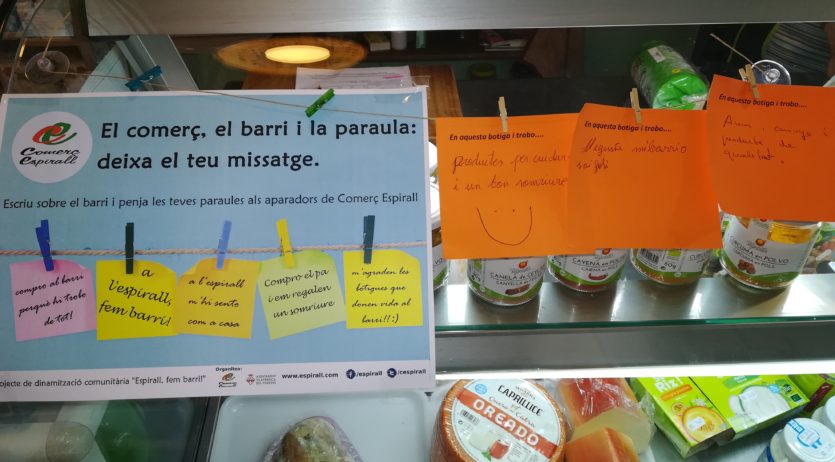 Comerç
Espirall
El comerç, el barri i la paraula:
deixa el teu missatge.
Escriu sobre el barri i penja les teves paraules als aparadors de Comerç Espirall
compro al barri
perquè hi trobo
de tot!
a
l'espirall,
fem barri!
a l'espirall
m'hi sento
com a casa
Compro el pa
i em regalen
un somriure
m'agraden les
botigues que
donen vida al
barri!! :)
Organitza:
ojecte de dinamització comunitària "Espirall, fem barri!"
www.espirall.com
/espirall
/cespirall
En aquesta botiga i trobo....
productes per cuidar-
i un bon somriure
En aquesta botiga i trobo....
M'agusta mi barrio
soi feli
En aquesta botiga i trobo....
producte de
qualitat.
CANELA de CEYLÁN
CANYELLA
CAYENA en POLVO
CAIENA en
60g
CÚRCUMA en POLVO
CÚRCUMA en POLS
CAPRILLICE
Queso de Cabra
OREADO
Rizi